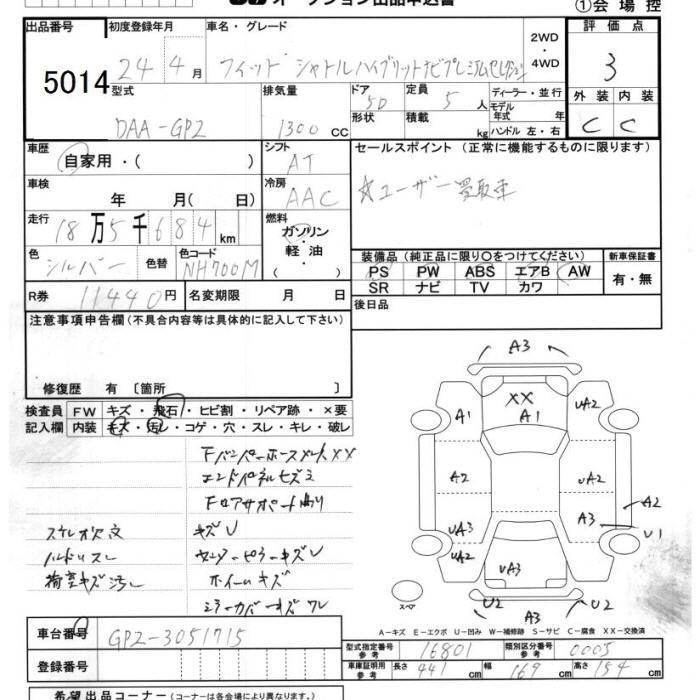 オークション出品申込書
①会場控
出品番号 初度登録年月 車名・グレード 評価点
5014 24年4月 フィット シャトルハイブリットナビプレミアムセレクション 2WD・4WD 3
型式 排気量 ドア 定員 ディーラー・並行 外装 内装
DAA-GP2 1300CC 5D 5人 モデル年式 年式 C C
形状 積載 kg ハンドル 左・右
車歴 シフト セールスポイント (正常に機能するものに限ります)
自家用・( ) AT
☆ユーザー買取車
車検 冷房
年 月( 日) AAC
走行 燃料
18万5千684km ガソリン・軽油・( )
色 色コード 装備品 (純正品に限り○をつけてください) 新車保証書
シルバー 色替 NH700M PS PW ABS エアB AW 有・無
SR ナビ TV カワ
R券 11440円 名変期限 月 日 後日品
注意事項申告欄(不具合内容等は具体的に記入して下さい)
修復歴 有 [箇所 ]
検査員 FW キズ・飛石・ヒビ割・リペア跡・×要
記入欄 内装 キズ・汚れ・コゲ・穴・スレ・キレ・破レ
FバンパーホースメントXX
エンドパネルキズミ
Fロアサポート曲り
ステレオ欠文 キズU
ハンドルスレ
荷室キズ汚レ ホイールキズ
ミラーカバーキズ ワレ
A3
XX
A1 A1 UA2
A2 UA2
A2
UA3 A3
U1
UA2 UA2
UA3
スペア
U2 A3 U2
A-キズ E-エクボ U-凹み W-補修跡 S-サビ C-腐食 XX-交換済
車台番号 GP2-3051715
型式指定番号 参考 16801 類別区分番号 参考 0005
登録番号 車庫証明用 参考 長さ 441cm 幅 169cm 高さ 154cm
希望出品コーナー(コーナーは各会場により異なります)